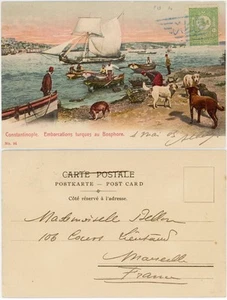 Constantinople. Embarcations turques au Bosphore.
No. 36
CARTE POSTALE
POSTKARTE – POST CARD
Côté réservé à l'adresse.
Mademoiselle
106 Cours Lieutaud
Marseille
France